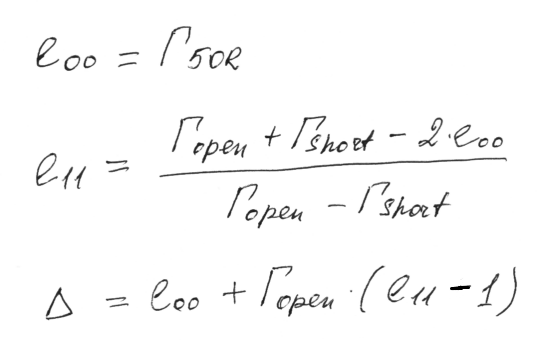 e₀₀ = Γ50R
e₁₁ = (Γopen + Γshort − 2·e₀₀) / (Γopen − Γshort)
Δ = e₀₀ + Γopen·(e₁₁ − 1)